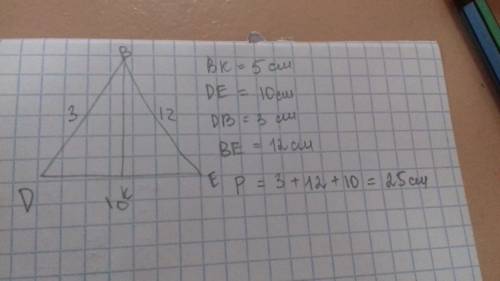 B
3 12
D K E
10
BK = 5 см
DE = 10 см
DB = 3 см
BE = 12 см
P = 3 + 12 + 10 = 25 см